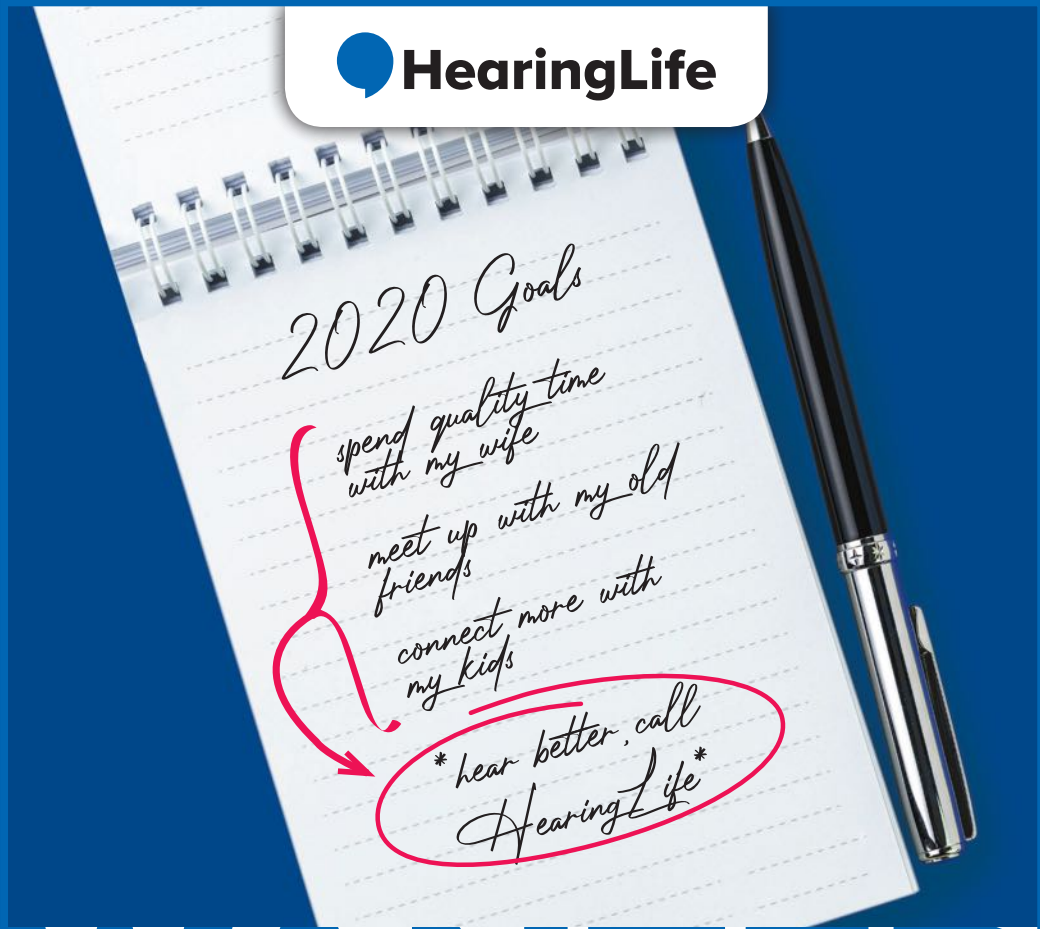 HearingLife
2020 Goals
spend quality time
with my wife
meet up with my old
friends
connect more with
my kids
*hear better, call
HearingLife*